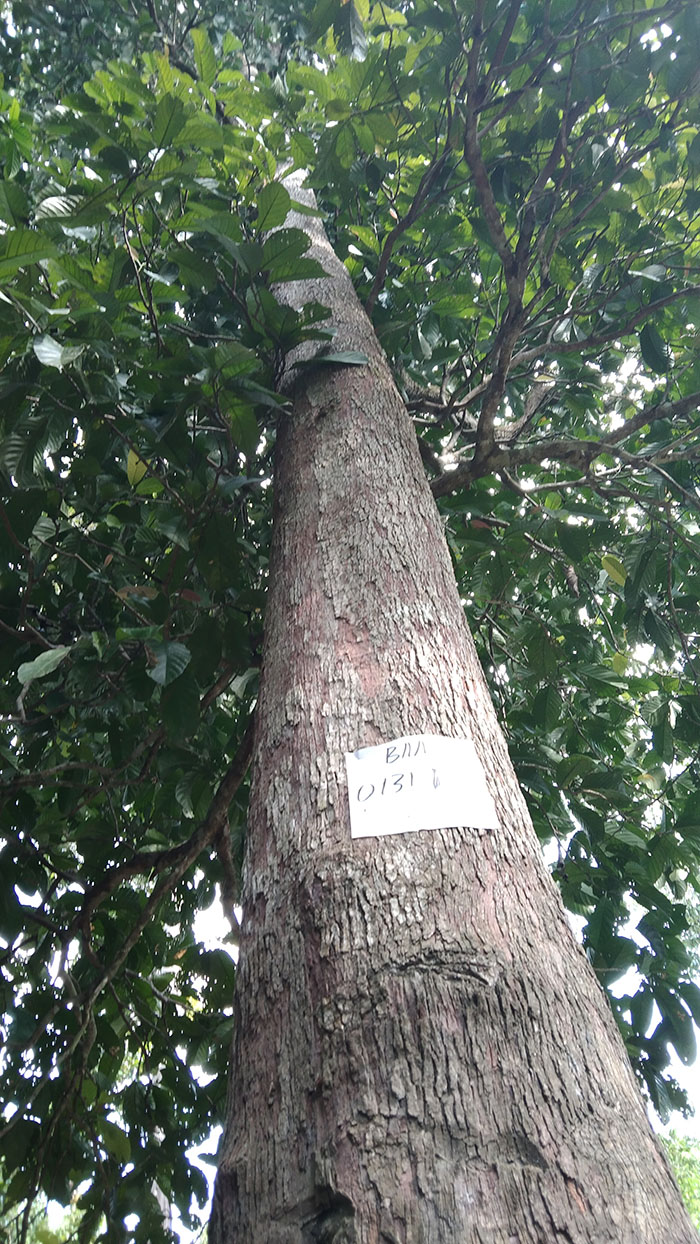 BAA
0131